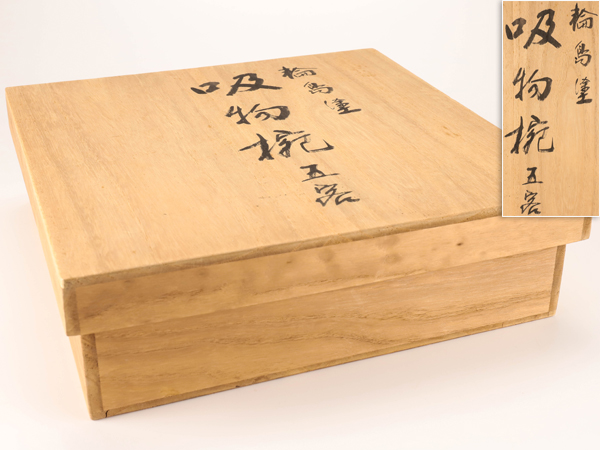 輪島塗
吸物椀
五客
輪島塗
吸物椀
五客